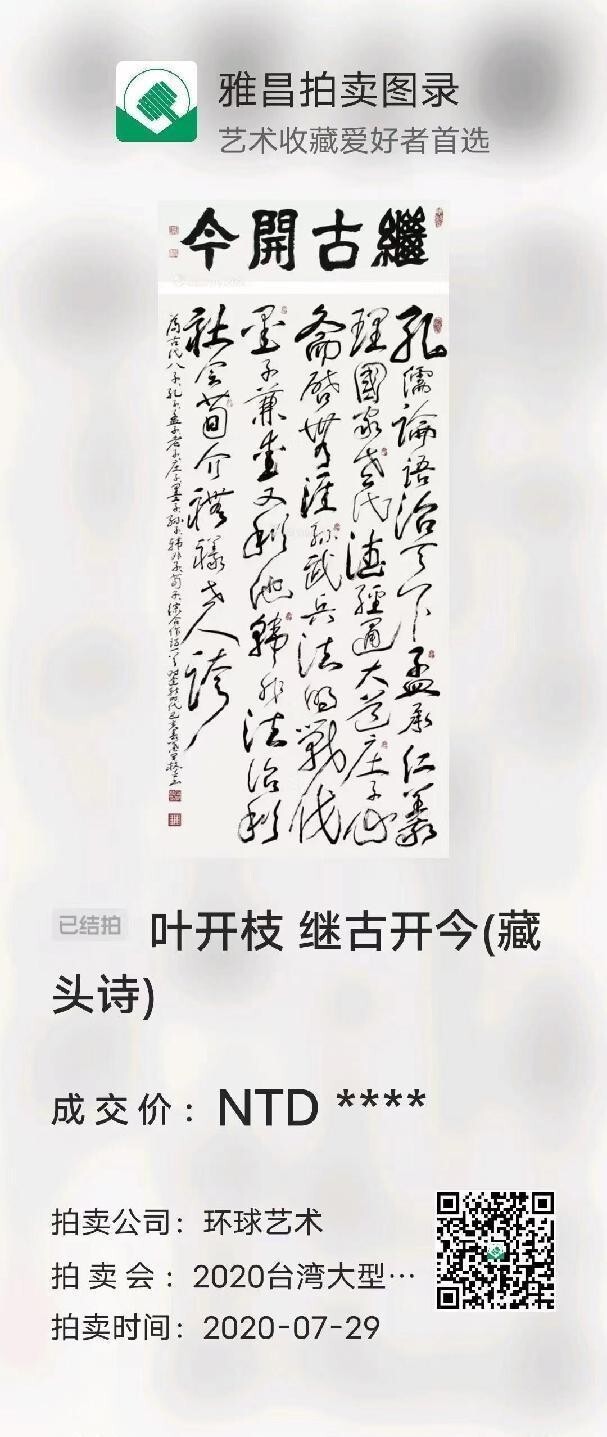 雅昌拍卖图录
艺术收藏爱好者首选
繼古開今
孔儒論語治天下孟承仁義
理國家老氏德經通大道庄子山
爺啓世涯孙武兵法的戰伐
墨子兼愛又利他韓非法治利
社会荀介禮釋世人誇
已结拍
叶开枝 继古开今(藏
头诗)
成交价：NTD ****
拍卖公司：环球艺术
拍卖会：2020台湾大型…
拍卖时间：2020-07-29